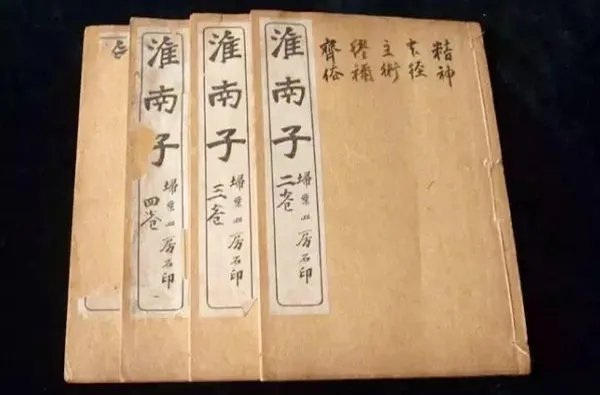 精神
本經
主術
繆稱
齊俗
淮南子
埽葉山房石印
二卷
淮南子
埽葉山房石印
三卷
淮南子
埽葉山房石印
四卷